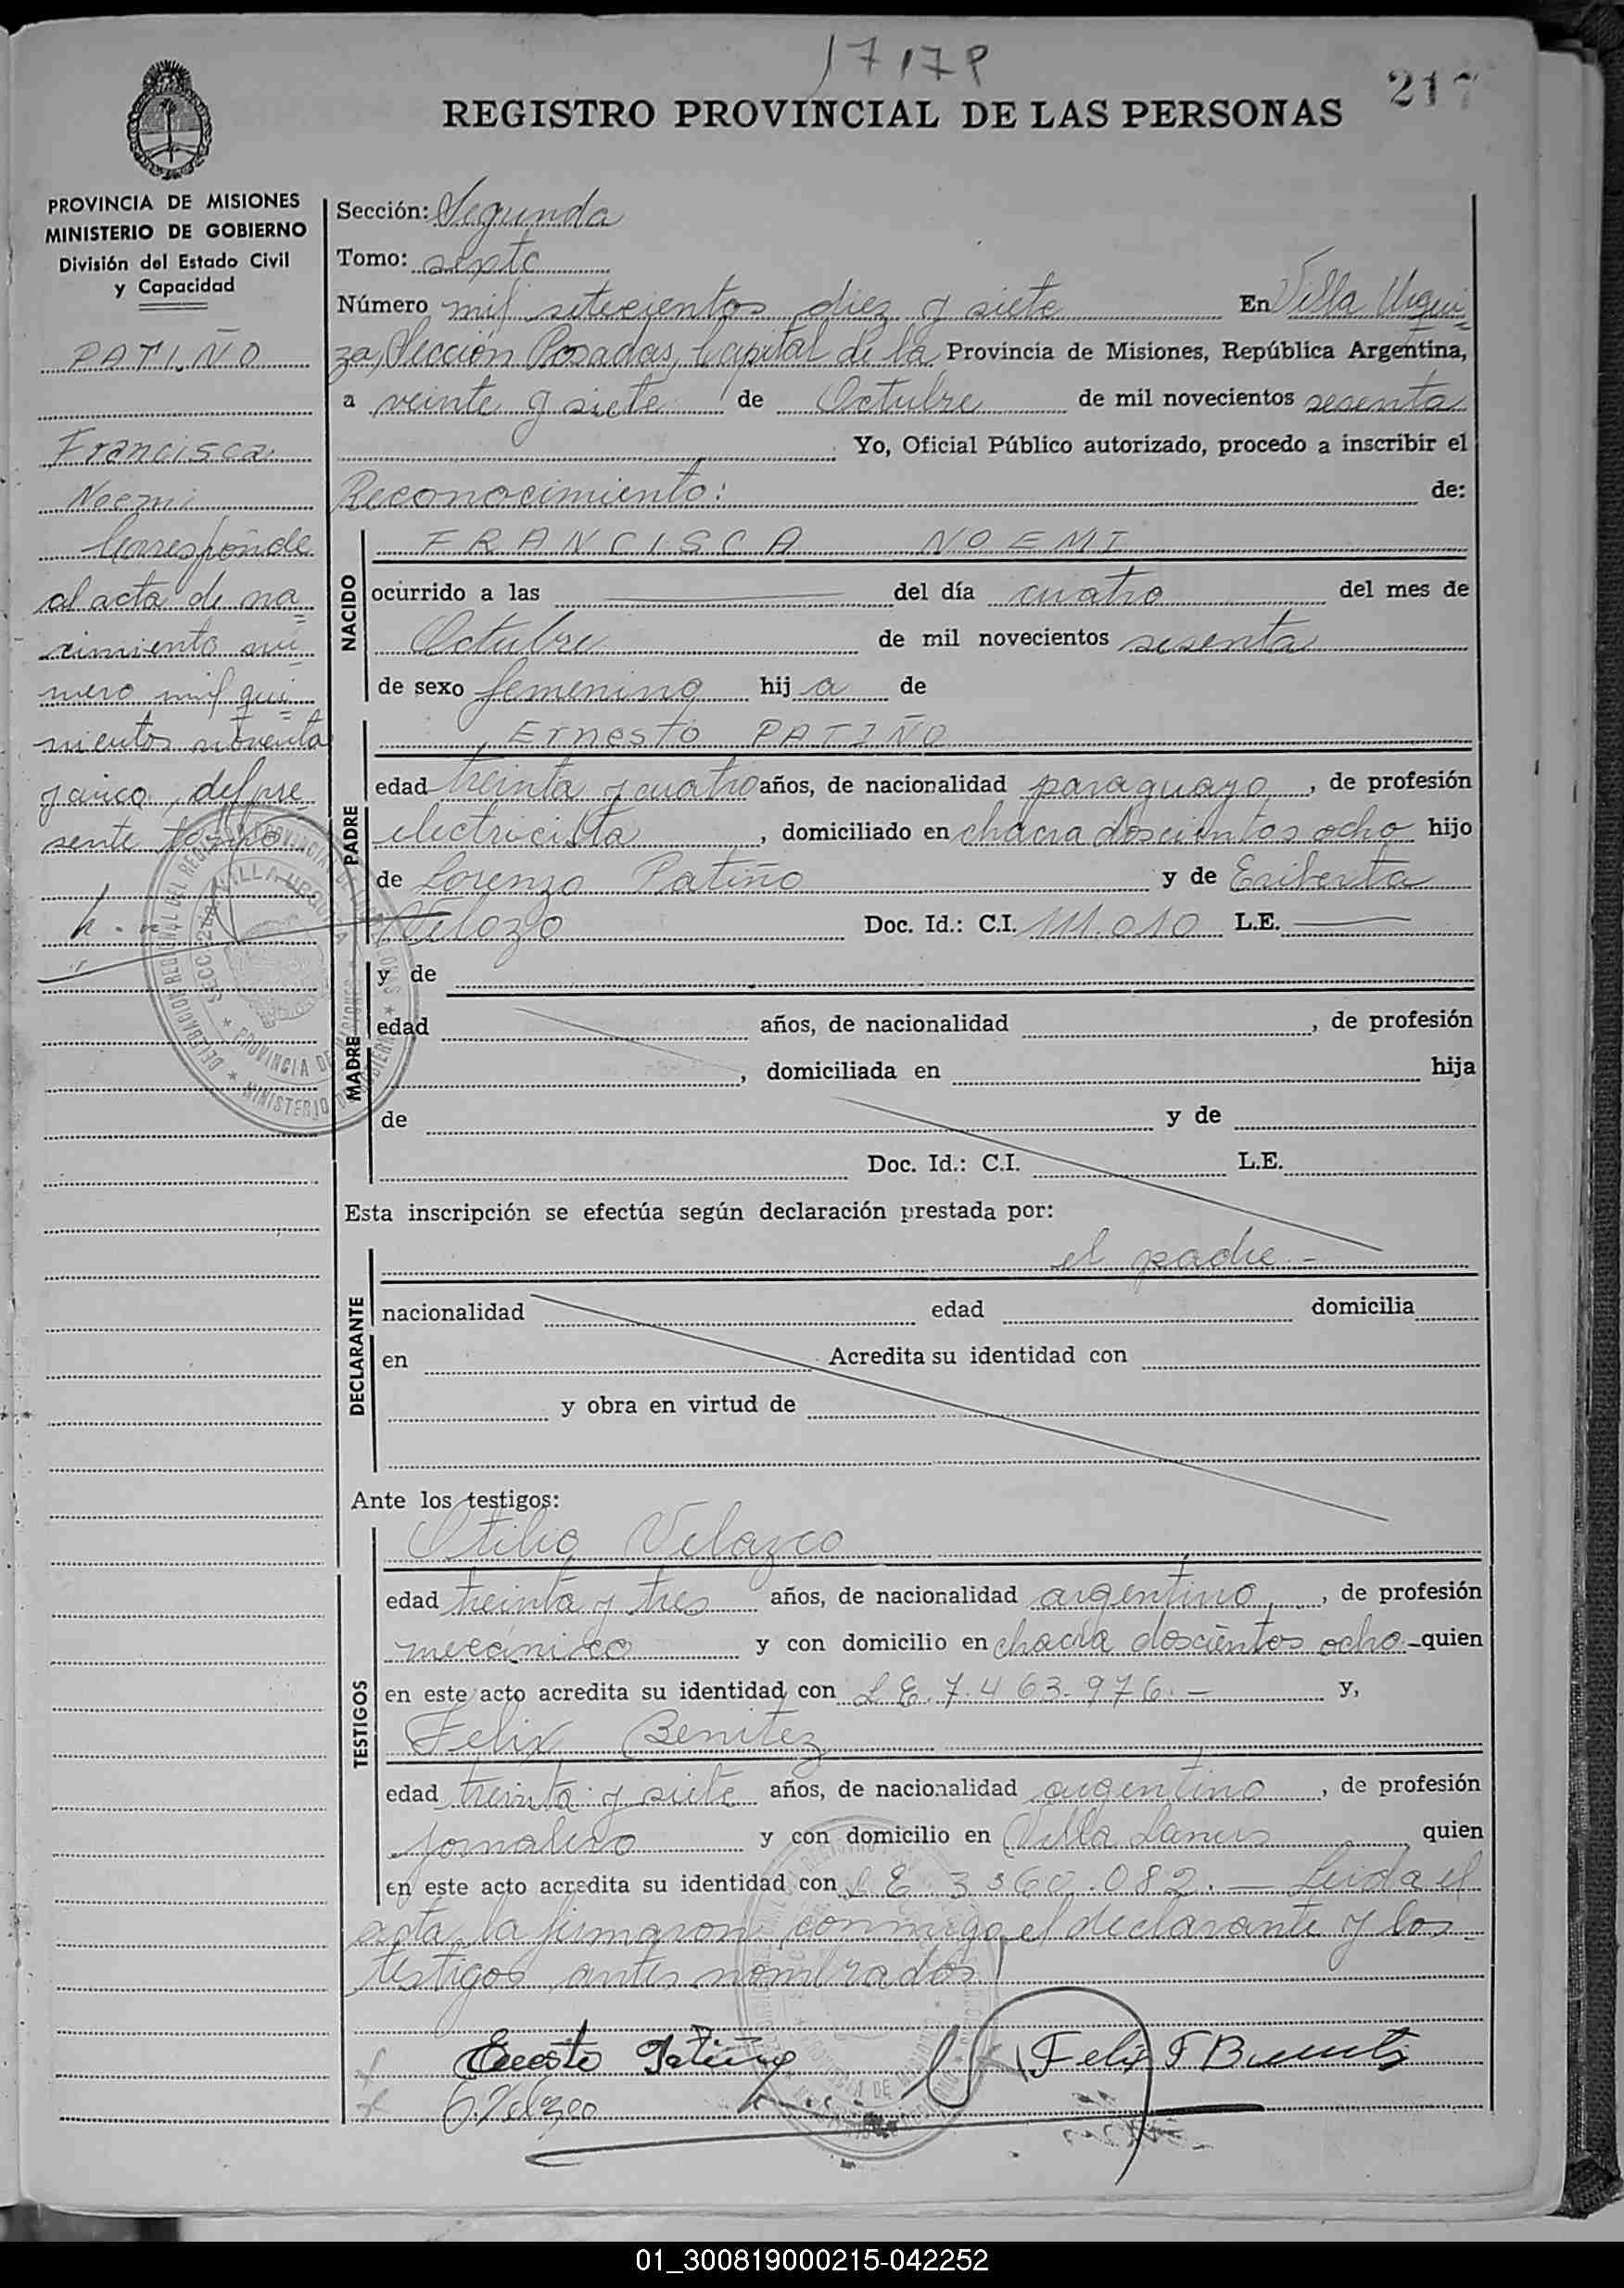 1717
217
REGISTRO PROVINCIAL DE LAS PERSONAS
PROVINCIA DE MISIONES
MINISTERIO DE GOBIERNO
División del Estado Civil
y Capacidad
PATIÑO
Francisca
Noemi
Corresponde
al acta de na
cimiento nú
mero mil qui
nientos noventa
y cinco, del pre
sente tomo
Sección: Segunda
Tomo: sexto
Número mil setecientos diez y siete En Villa Urqui
za, Sección Posadas, Capital de la Provincia de Misiones, República Argentina,
a veinte y siete de Octubre de mil novecientos sesenta
Yo, Oficial Público autorizado, procedo a inscribir el
Reconocimiento: de:
NACIDO
FRANCISCA NOEMI
ocurrido a las del día cuatro del mes de
Octubre de mil novecientos sesenta
de sexo femenino hij a de
PADRE
Ernesto PATIÑO
edad treinta y cuatro años, de nacionalidad paraguayo, de profesión
electricista, domiciliado en chacra doscientos ocho hijo
de Lorenzo Patiño y de Eriberta
Velozo Doc. Id.: C.I. 111.010 L.E.
MADRE
y de
edad años, de nacionalidad , de profesión
, domiciliada en hija
de y de
Doc. Id.: C.I. L.E.
Esta inscripción se efectúa según declaración prestada por:
el padre.-
DECLARANTE
nacionalidad edad domicilia
en Acredita su identidad con
y obra en virtud de
Ante los testigos:
TESTIGOS
Otilio Velazco
edad treinta y tres años, de nacionalidad argentino, de profesión
mecánico y con domicilio en chacra doscientos ocho - quien
en este acto acredita su identidad con L.E. 7.463.976.- y,
Felix Benitez
edad treinta y siete años, de nacionalidad argentino, de profesión
jornalero y con domicilio en Villa Lanus quien
en este acto acredita su identidad con L E 3360.082.- Leida el
acta, la firmaron conmigo, el declarante y los
testigos antes nombrados
Ernesto Patiño
Felix F Benitez
O. Velazco
01_300819000215-042252